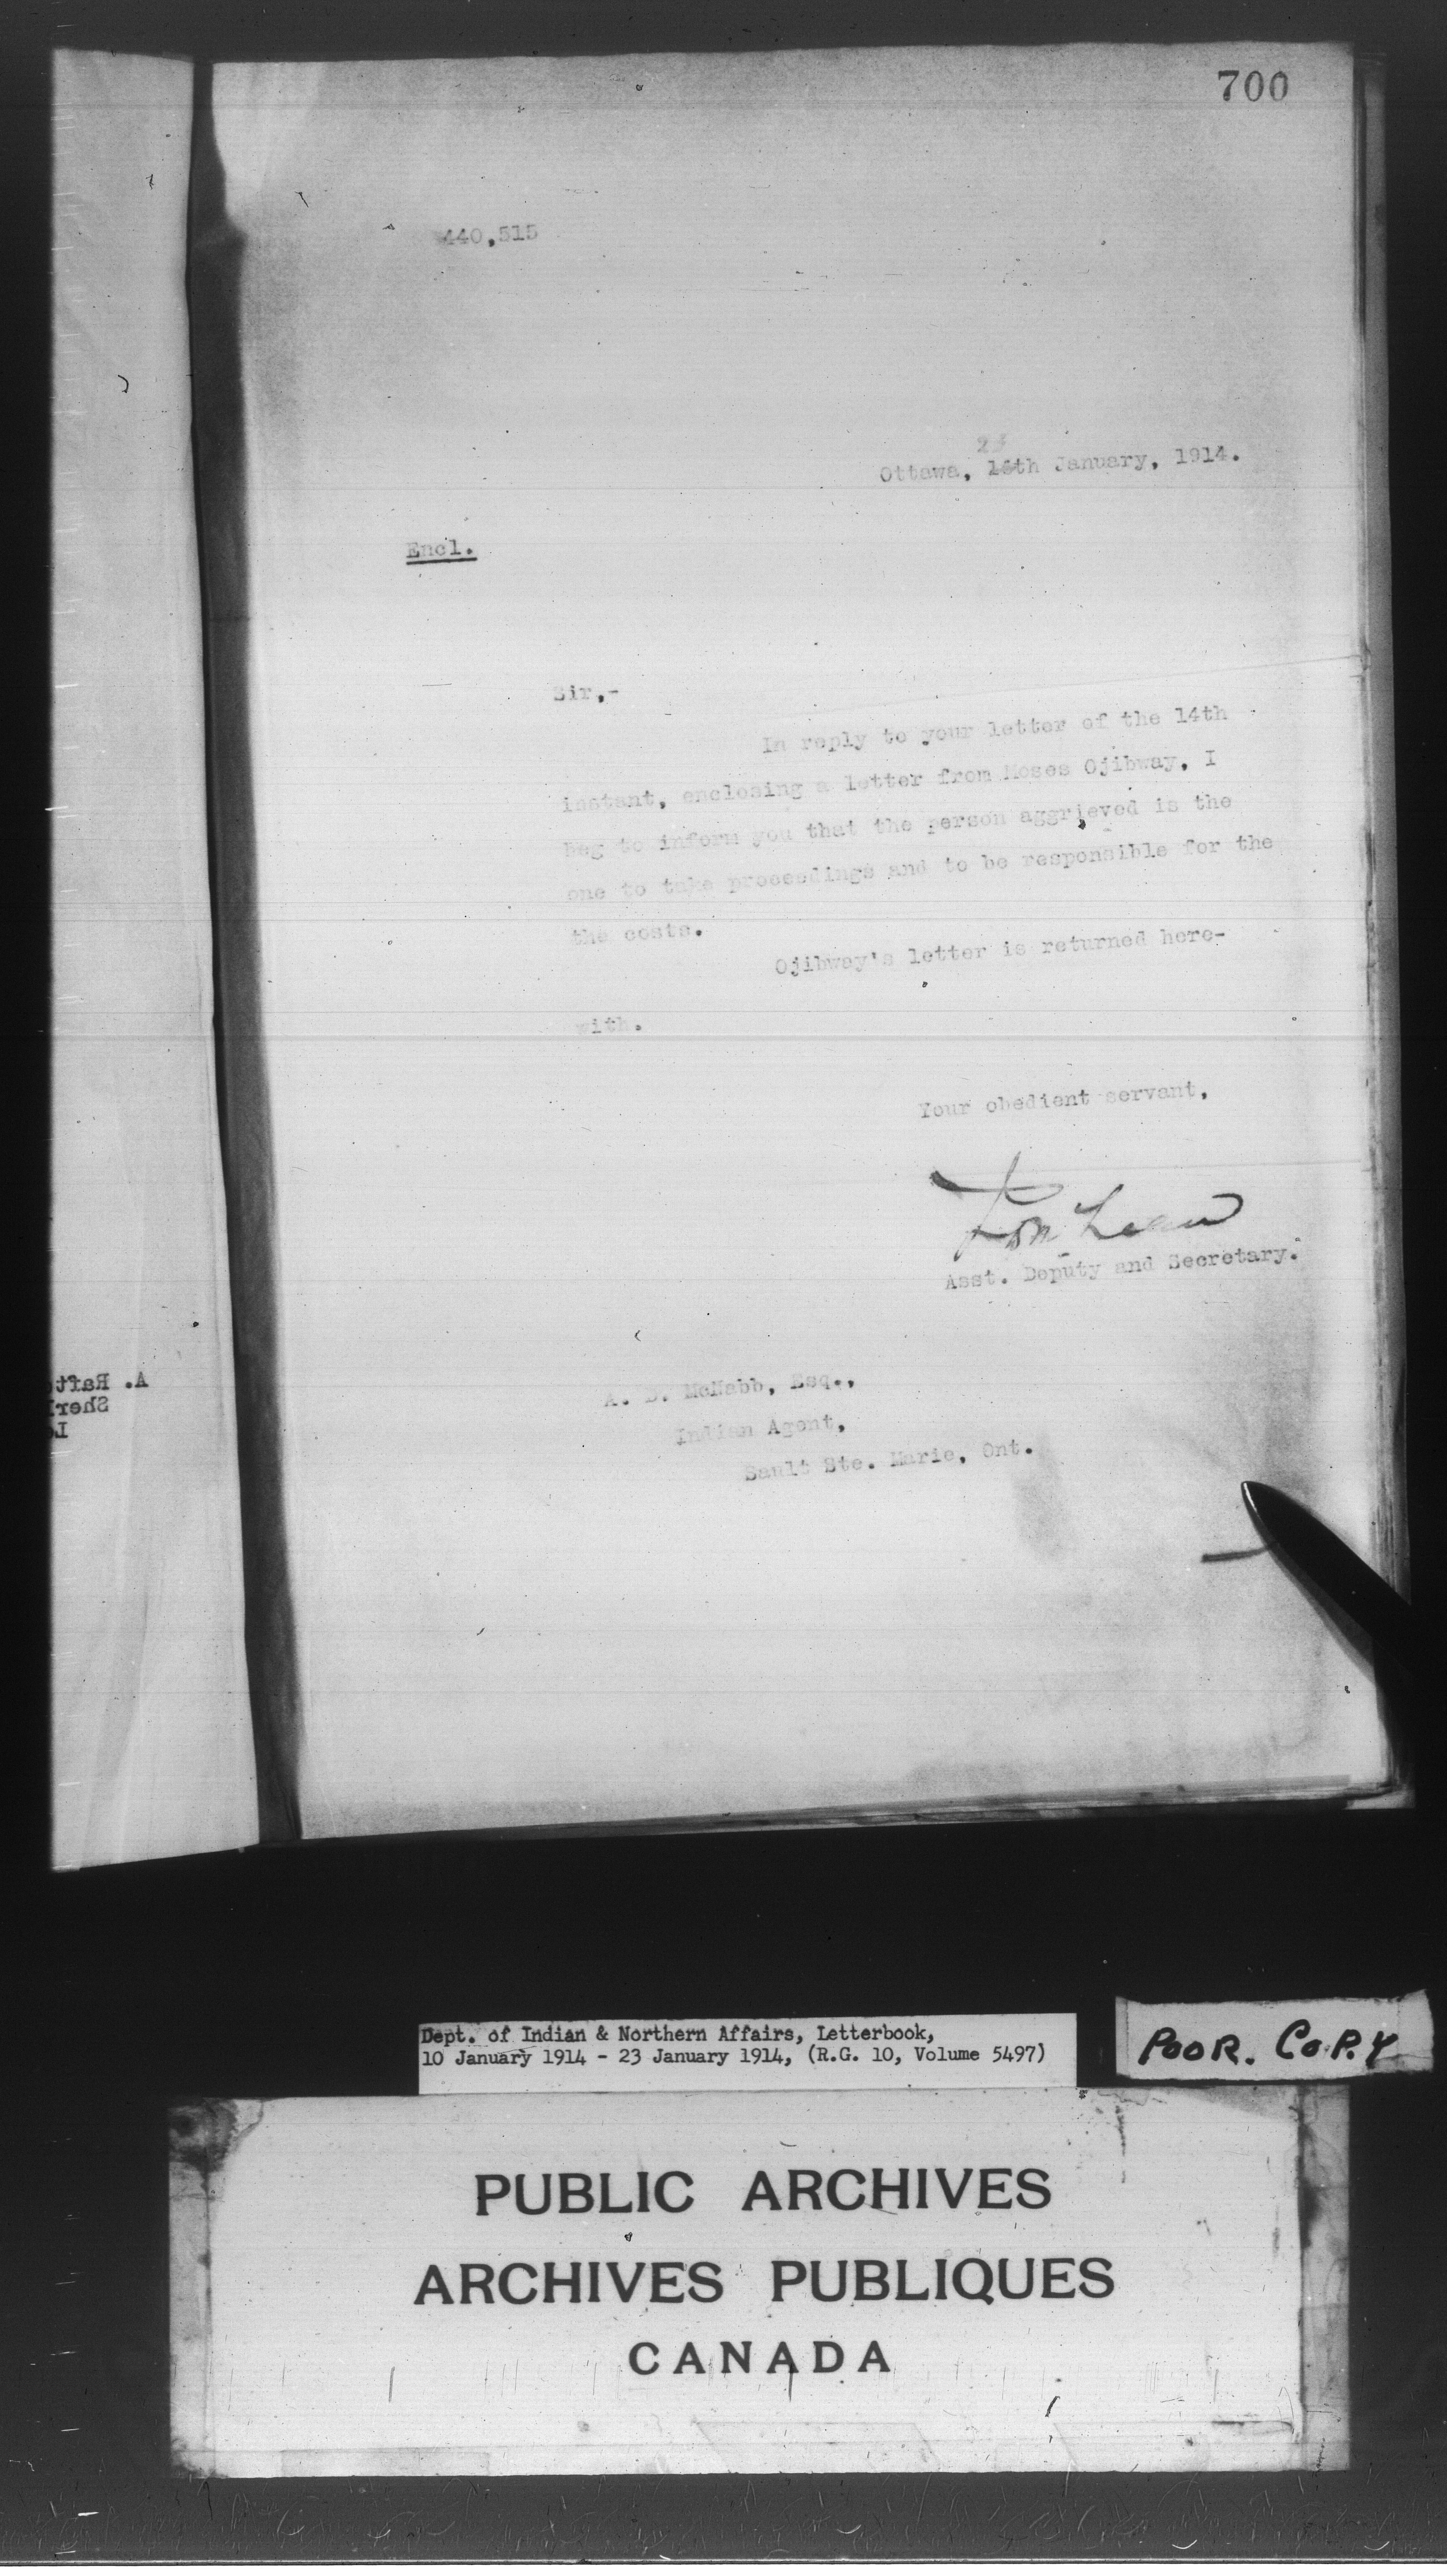 700
440,515
23
Ottawa, 16th January, 1914.
Encl.
Sir,-
In reply to your letter of the 14th
instant, enclosing a letter from Moses Ojibway, I
beg to inform you that the person aggrieved is the
one to take proceedings and to be responsible for the
the costs.
Ojibway's letter is returned here-
with.
Your obedient servant,
Asst. Deputy and Secretary.
A. D. McNabb, Esq.,
Indian Agent,
Sault Ste. Marie, Ont.
A. Rafte
Sher
Lo
Dept. of Indian & Northern Affairs, Letterbook,
10 January 1914 - 23 January 1914, (R.G. 10, Volume 5497)
POOR. COPY
PUBLIC ARCHIVES
ARCHIVES PUBLIQUES
CANADA